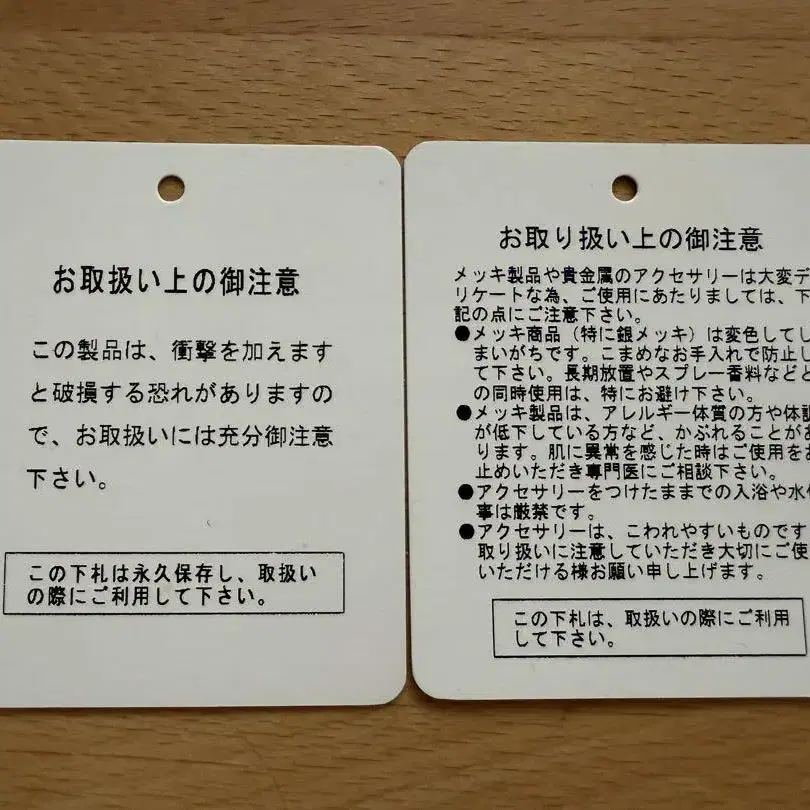 お取扱い上の御注意
この製品は、衝撃を加えます
と破損する恐れがありますの
で、お取扱いには充分御注意
下さい。
この下札は永久保存し、取扱い
の際にご利用して下さい。
お取り扱い上の御注意
メッキ製品や貴金属のアクセサリーは大変デ
リケートな為、ご使用にあたりましては、下
記の点にご注意下さい。
●メッキ商品（特に銀メッキ）は変色してし
まいがちです。こまめなお手入れで防止し
て下さい。長期放置やスプレー香料などと
の同時使用は、特にお避け下さい。
●メッキ製品は、アレルギー体質の方や体調
が低下している方など、かぶれることがあ
ります。肌に異常を感じた時はご使用をお
止めいただき専門医にご相談下さい。
●アクセサリーをつけたままでの入浴や水仕
事は厳禁です。
●アクセサリーは、こわれやすいものです
取り扱いに注意していただき大切にご使
いただける様お願い申し上げます。
この下札は、取扱いの際にご利用
して下さい。